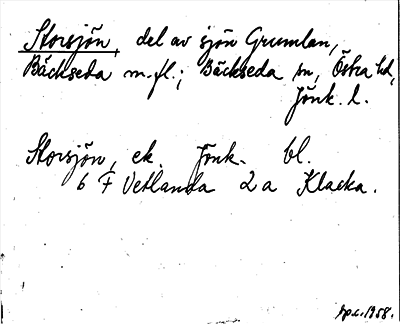 Storsjön, del av sjön Grumlan,
Bäckseda m.fl.; Bäckseda sn, Östra hd,
Jönk. l.
Storsjön, ek. Jönk. bl.
6 F Vetlanda 2 a Klacka.
1958.